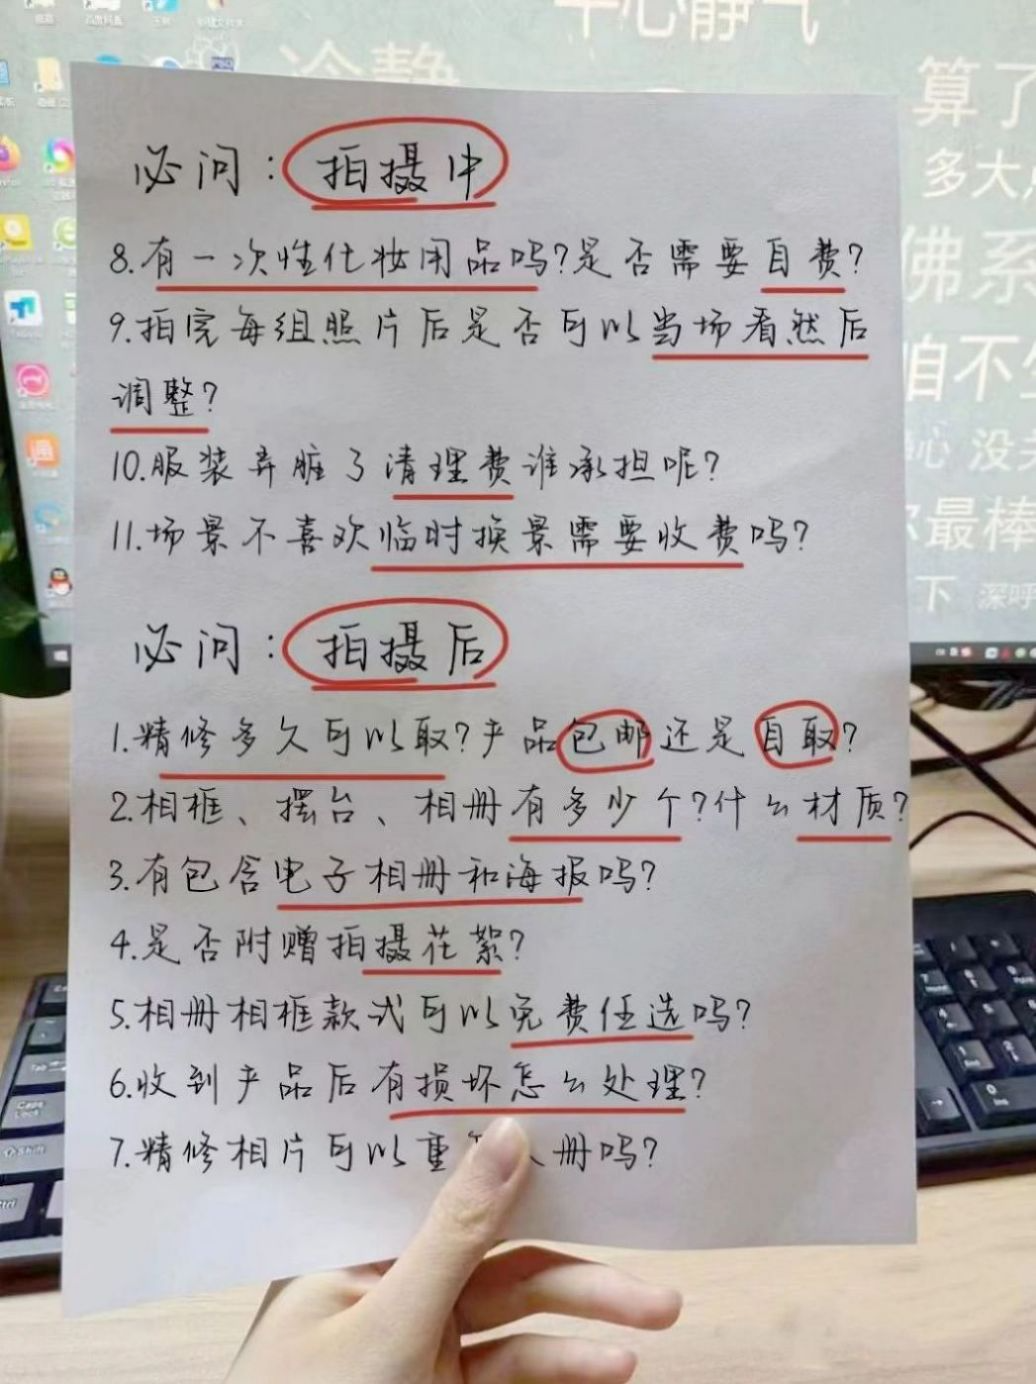 平心静气
冷静
算了
多大
佛系
怕不
心 没
最棒
下 深呼
必问：拍摄中
8.有一次性化妆用品吗?是否需要自费?
9.拍完每组照片后是否可以当场看然后
调整?
10.服装弄脏了清理费谁承担呢?
11.场景不喜欢临时换景需要收费吗?
必问：拍摄后
1.精修多久可以取?产品包邮还是自取?
2.相框、摆台、相册有多少个?什么材质?
3.有包含电子相册和海报吗?
4.是否附赠拍摄花絮?
5.相册相框款式可以免费任选吗?
6.收到产品后有损坏怎么处理?
7.精修相片可以重 册吗?